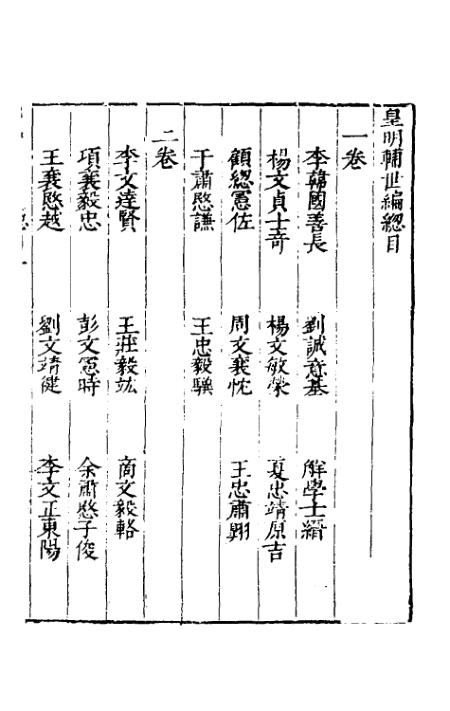 皇明輔世編總目
一卷
李韓國善長 劉誠意基 解學士縉
楊文貞士竒 楊文敏榮 夏忠靖原吉
顧總憲佐 周文襄忱 王忠肅翺
于肅愍謙 王忠毅驥
二卷
李文達賢 王莊毅竑 商文毅輅
項襄毅忠 彭文憲時 余肅愍子俊
王襄愍越 劉文靖健 李文正東陽